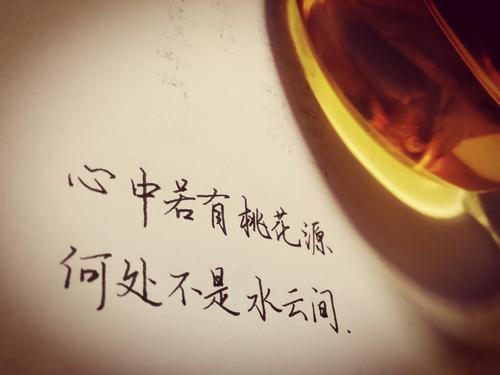 心中若有桃花源
何处不是水云间.